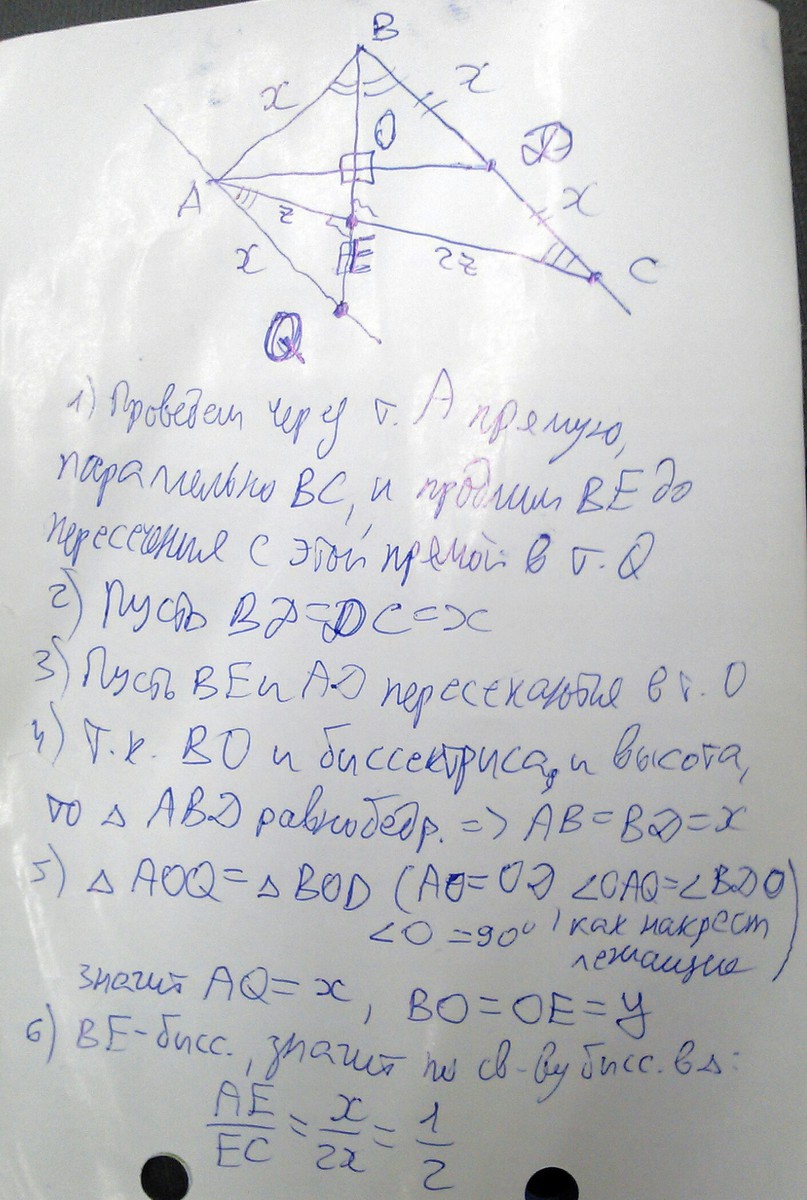 B
x
x
O
D
A
z
x
x
E
2z
C
Q
1) Проведем через т. A прямую,
параллельно BC, и продлим BE до
пересечения с этой прямой в т. Q
2) Пусть BD=DC=x
3) Пусть BE и AD пересекаются в т. O
4) Т.к. BO и биссектриса, и высота,
то △ ABD равнобедр. => AB=BD=x
5) △ AOQ=△ BOD (AO=OD ∠OAQ=∠BDO
∠O=90° как накрест
лежащие)
значит AQ=x, BO=OE=y
6) BE-бисс., значит по св-ву бисс. в △:
AE/EC = x/2x = 1/2